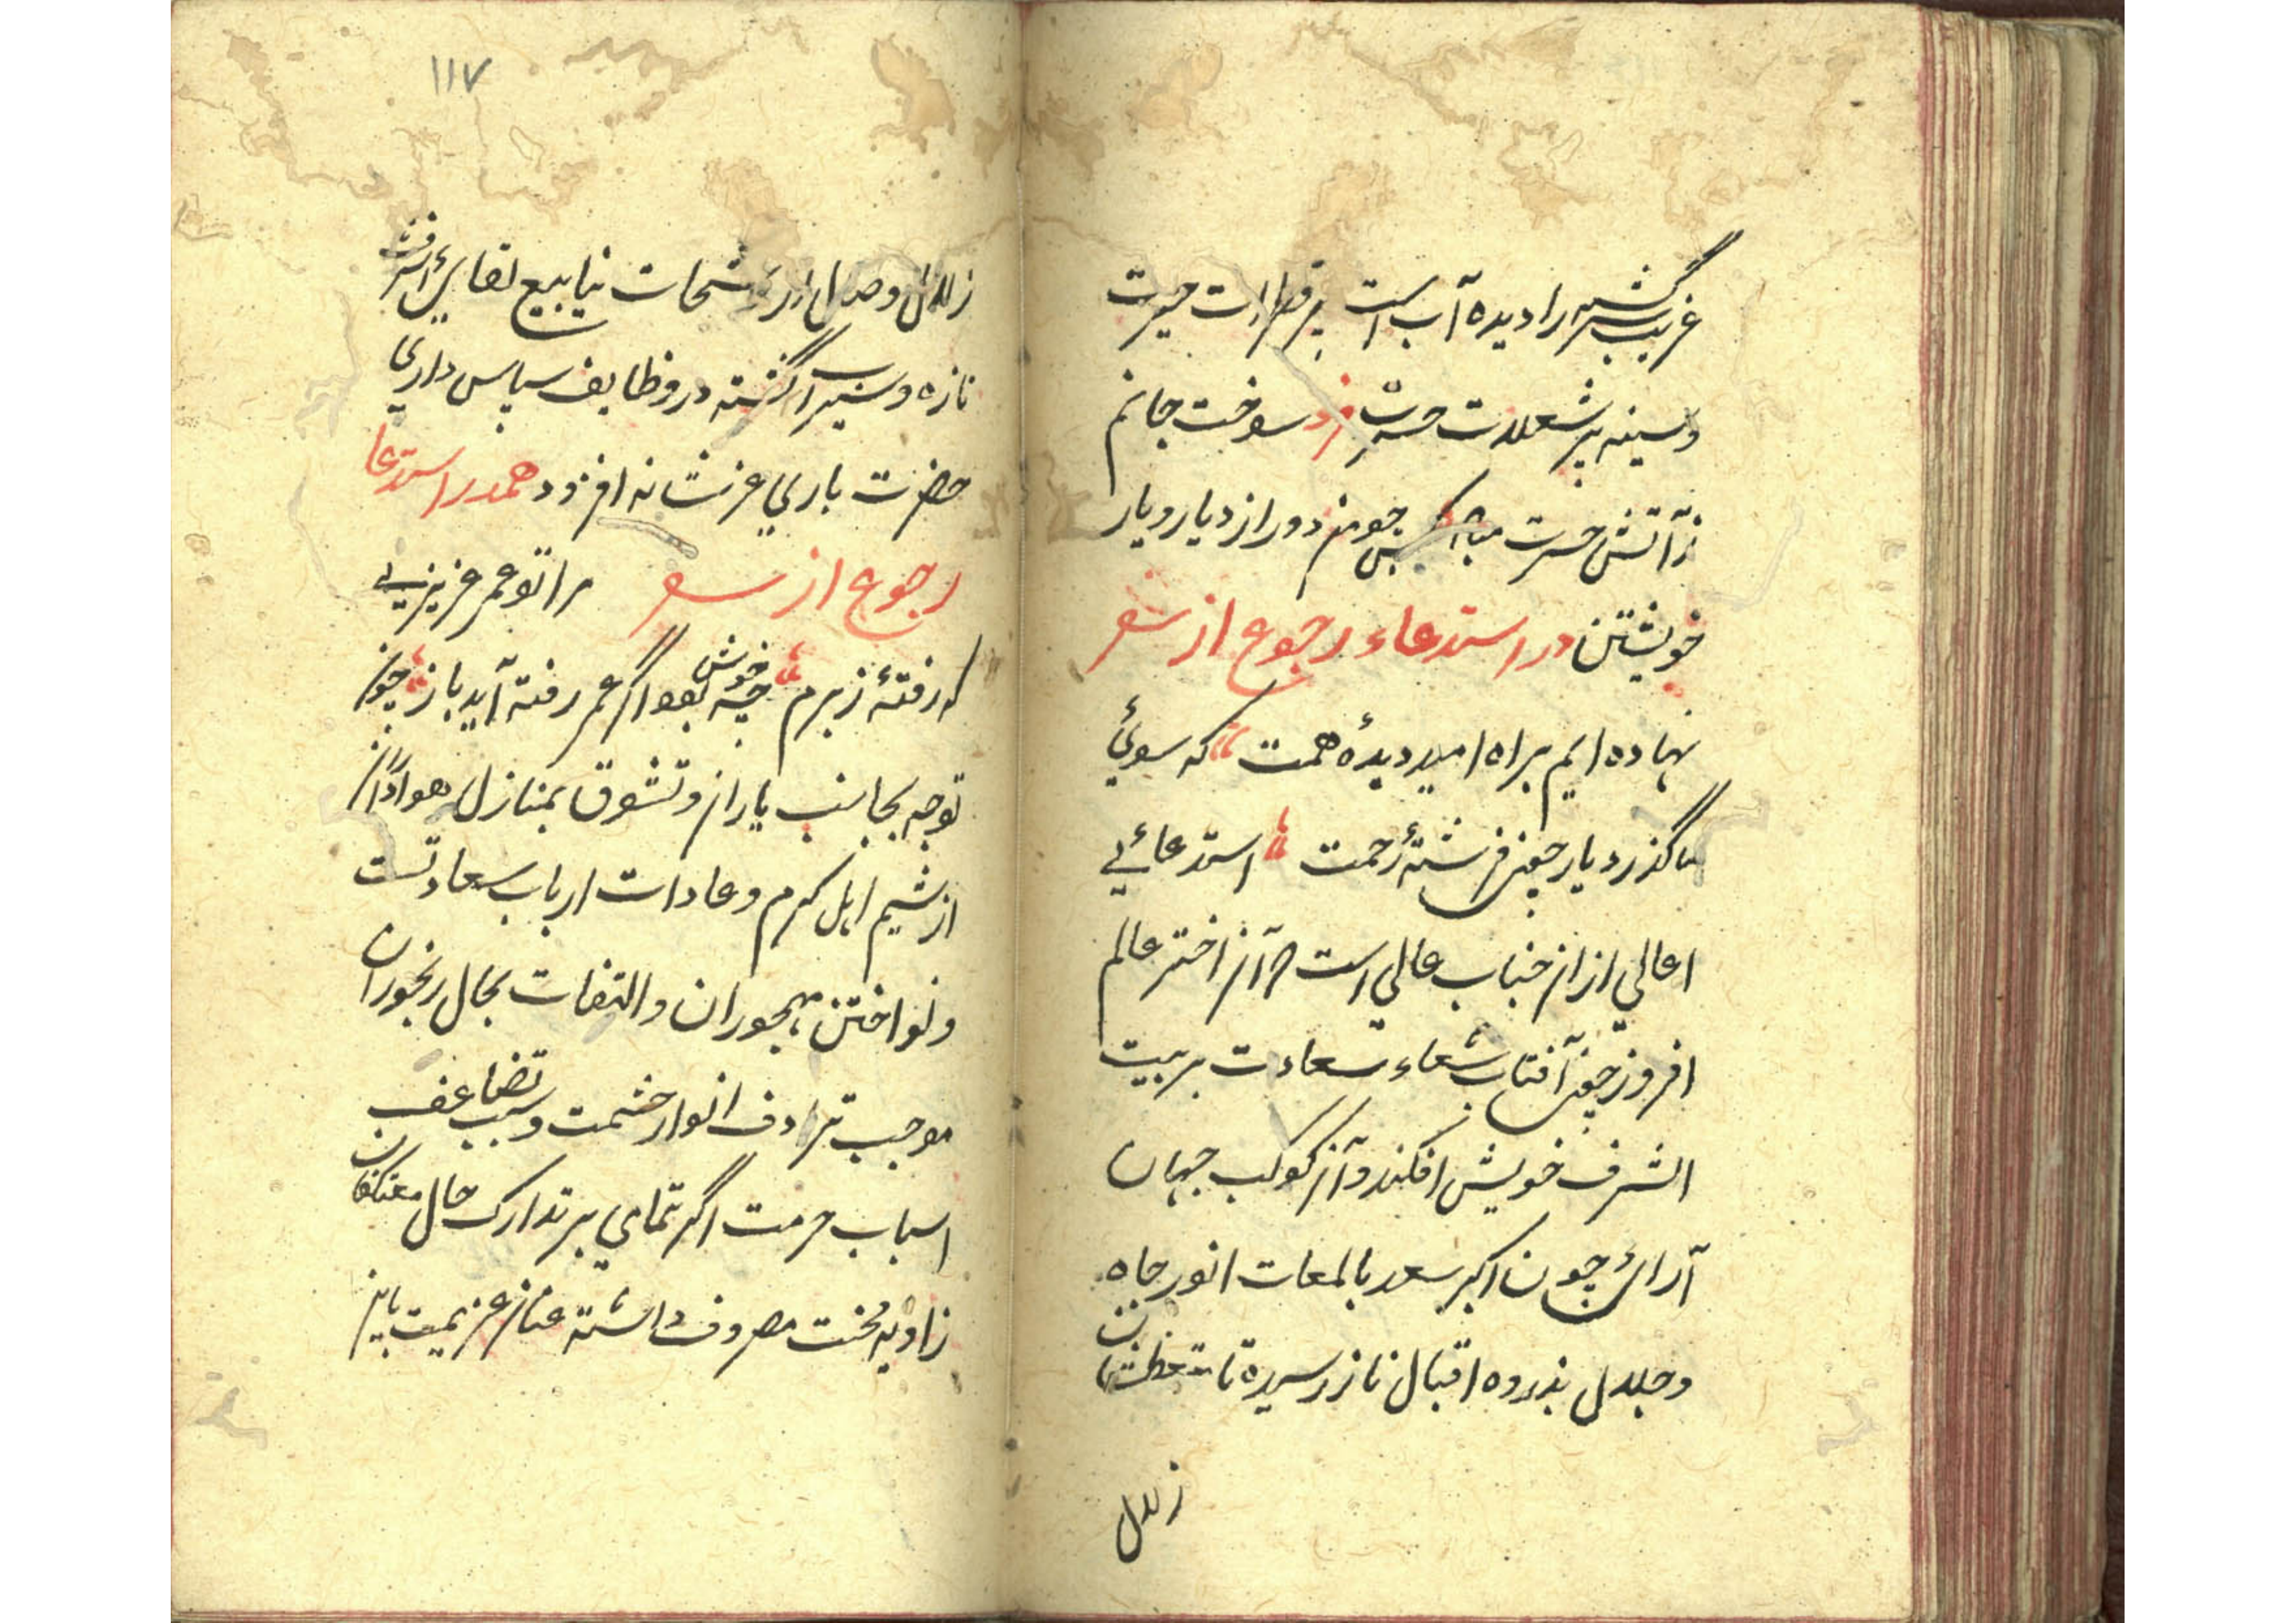 غریب گشته را دیده آب است پر قطرات حیرت
و سینه پر شعلات حسرت فرد سوخت جانم
ز آتش حسرت مباد کس چو من دور از دیار و یار
خویشتن در استدعاء رجوع از سفر
نهاده ایم براه امید دیدهٔ همت که سوئ
ما گذرد یار چون فرشتهٔ رحمت استدعائی
اعالی از ان جناب عالی است که آن اختر عالم
افروز چون آفتاب شعاء سعادت بر بیت
الشرف خویش افکند و آن کوکب جهان
آرائ چون اکبر سعد با لمعات انور جاه
و جلال بذروه اقبال نازر رسیده تا متعطشان
زلال
١١٧
زلال وصال از رشحات ینابیع لقای اشرف
تازه و سیراب گشته در وظایف سپاس داری
حضرت باری عز شانه افزود همدر استدعا
رجوع از سفر مرا تو عمر عزیزی
که رفتهٔ ز برم چه خوش بود اگر عمر رفته آید باز چون
توجه بجانب یاران و تشوق بمنازل هواداران
از شیم اهل کرم و عادات ارباب سعادتست
و نواختن مهجوران و التفات بحال رنجوران
موجب ترادف انوار حشمت و سبب تضاعف
اسباب حرمت اگر تمامی بر تدارک حال معتکفان
زاویه محنت مصروف داشته عنان عزیمت باین